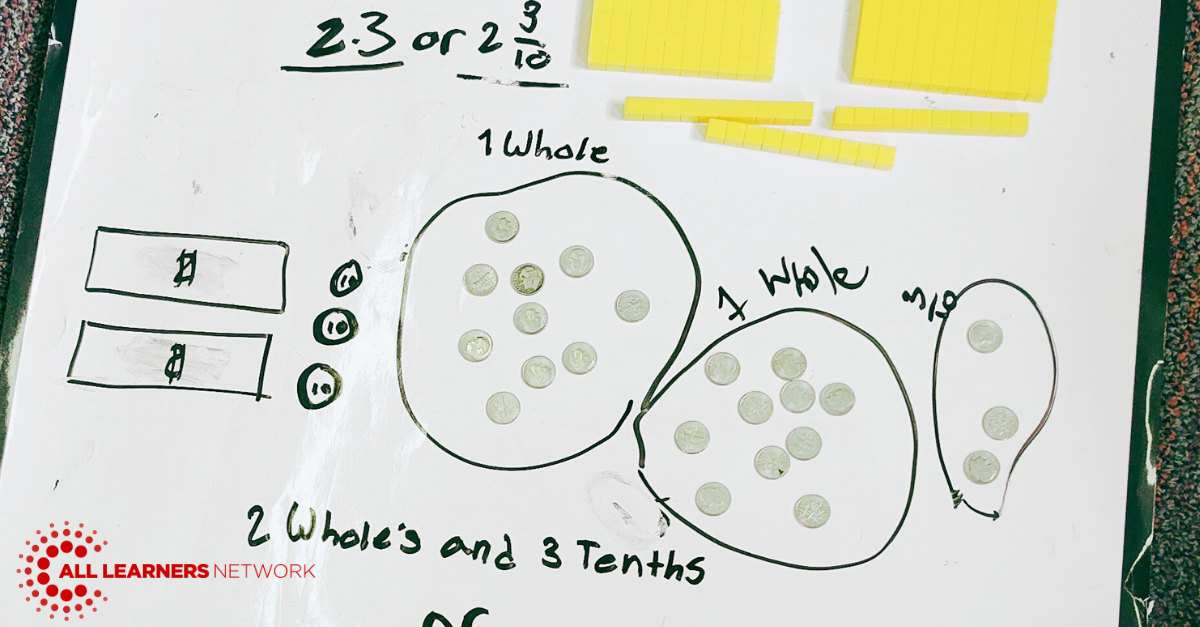 2.3 or 2 3/10
1 Whole
1 Whole
3/10
$
10
10
$
10
2 Whole's and 3 Tenths
or
ALL LEARNERS NETWORK